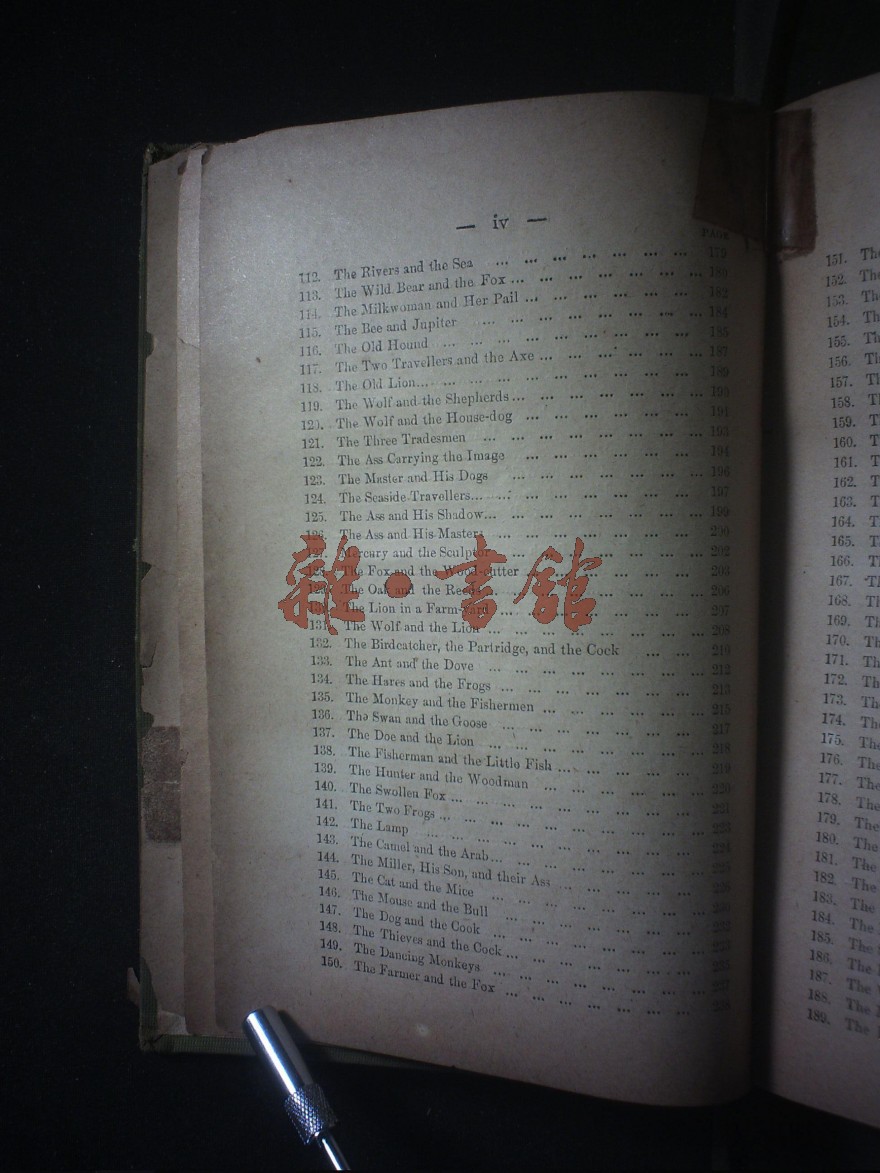 — iv —
PAGE
112. The Rivers and the Sea ... ... ... ... ... ... ... 179
113. The Wild Bear and the Fox ... ... ... ... ... ... 180
114. The Milkwoman and Her Pail ... ... ... ... ... ... 182
115. The Bee and Jupiter ... ... ... ... ... ... ... 184
116. The Old Hound ... ... ... ... ... ... ... ... 185
117. The Two Travellers and the Axe ... ... ... ... ... 187
118. The Old Lion... ... ... ... ... ... ... ... ... 189
119. The Wolf and the Shepherds ... ... ... ... ... ... 190
120. The Wolf and the House-dog ... ... ... ... ... ... 191
121. The Three Tradesmen ... ... ... ... ... ... ... 193
122. The Ass Carrying the Image ... ... ... ... ... ... 194
123. The Master and His Dogs ... ... ... ... ... ... 196
124. The Seaside Travellers... ... ... ... ... ... ... 197
125. The Ass and His Shadow... ... ... ... ... ... ... 199
126. The Ass and His Master; ... ... ... ... ... ... 200
127. Mercury and the Sculptor ... ... ... ... ... ... 202
128. The Fox and the Wood-cutter ... ... ... ... ... 203
129. The Oak and the Reeds ... ... ... ... ... ... ... 206
130. The Lion in a Farm-yard ... ... ... ... ... ... 207
131. The Wolf and the Lion ... ... ... ... ... ... ... 208
132. The Birdcatcher, the Partridge, and the Cock ... ... 210
133. The Ant and the Dove ... ... ... ... ... ... ... 212
134. The Hares and the Frogs ... ... ... ... ... ... ... 213
135. The Monkey and the Fishermen ... ... ... ... ... 215
136. The Swan and the Goose ... ... ... ... ... ... 217
137. The Doe and the Lion ... ... ... ... ... ... ... 218
138. The Fisherman and the Little Fish ... ... ... ... ... 219
139. The Hunter and the Woodman ... ... ... ... ... 220
140. The Swollen Fox ... ... ... ... ... ... ... ... 221
141. The Two Frogs ... ... ... ... ... ... ... ...
142. The Lamp ... ... ... ... ... ... ... ... ...
143. The Camel and the Arab... ... ... ... ... ... ...
144. The Miller, His Son, and their Ass ... ... ... ... ...
145. The Cat and the Mice ... ... ... ... ... ...
146. The Mouse and the Bull ... ... ... ... ... ...
147. The Dog and the Cook ... ... ... ... ... ...
148. The Thieves and the Cock ... ... ... ... ... ...
149. The Dancing Monkeys ... ... ... ... ... ... ...
150. The Farmer and the Fox ... ... ... ... ... ... ...
雜·書館
151. The
152. The
153. Th
154. Th
155. Th
156. Th
157. Th
158. Th
159. T
160. T
161. T
162. T
163. T
164. T
165. T
166. T
167. Th
168. Th
169. Th
170. Th
171. Th
172. Th
173. The
174. The
175. The
176. The
177. The
178. The
179. The
180. The
181. The
182. The
183. The
184. The
185. The
186. The
187. The
188. The
189. The